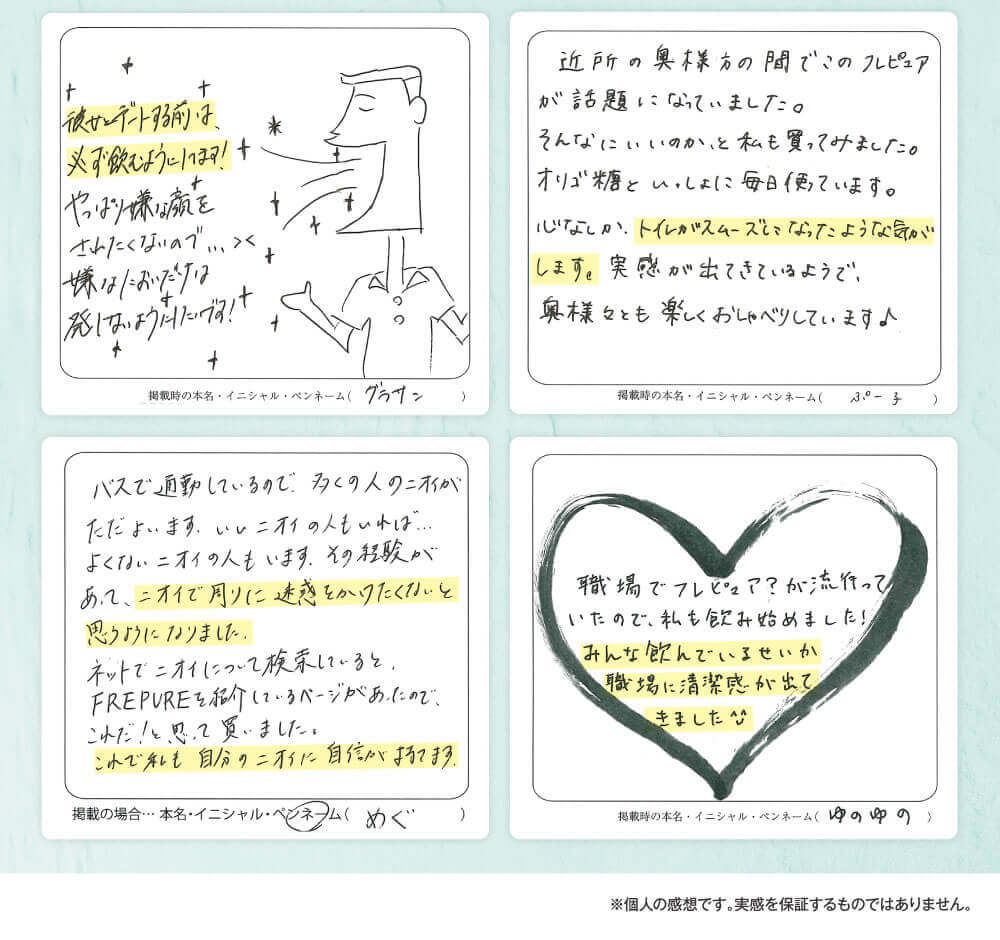 彼女とデートする前は、
必ず飲むようにしてます!
やっぱり嫌な顔を
されたくないので…><
嫌なにおいだけは
発しないようにしたいです!
掲載時の本名・イニシャル・ペンネーム( グラサン )
近所の奥様方の間でこのフレピュア
が話題になっていました。
そんなにいいのか、と私も買ってみました。
オリゴ糖といっしょに毎日使っています。
心なしか、トイレがスムーズになったような気が
します。実感が出てきているようで、
奥様々とも楽しくおしゃべりしています♪
掲載時の本名・イニシャル・ペンネーム( ぷー子 )
バスで通勤しているので、多くの人のニオイが
ただよいます。いいニオイの人もいれば…
よくないニオイの人もいます。その経験が
あって、ニオイで周りに迷惑をかけたくないと
思うようになりました。
ネットでニオイについて検索していると、
FREPUREを紹介しているページがあったので、
これだ!と思って買いました。
これで私も自分のニオイに自信がもてます。
掲載の場合… 本名・イニシャル・ペンネーム( めぐ )
職場でフレピュア?が流行って
いたので、私も飲み始めました!
みんな飲んでいるせいか
職場に清潔感が出て
きました^^
掲載時の本名・イニシャル・ペンネーム( ゆのゆの )
※個人の感想です。実感を保証するものではありません。